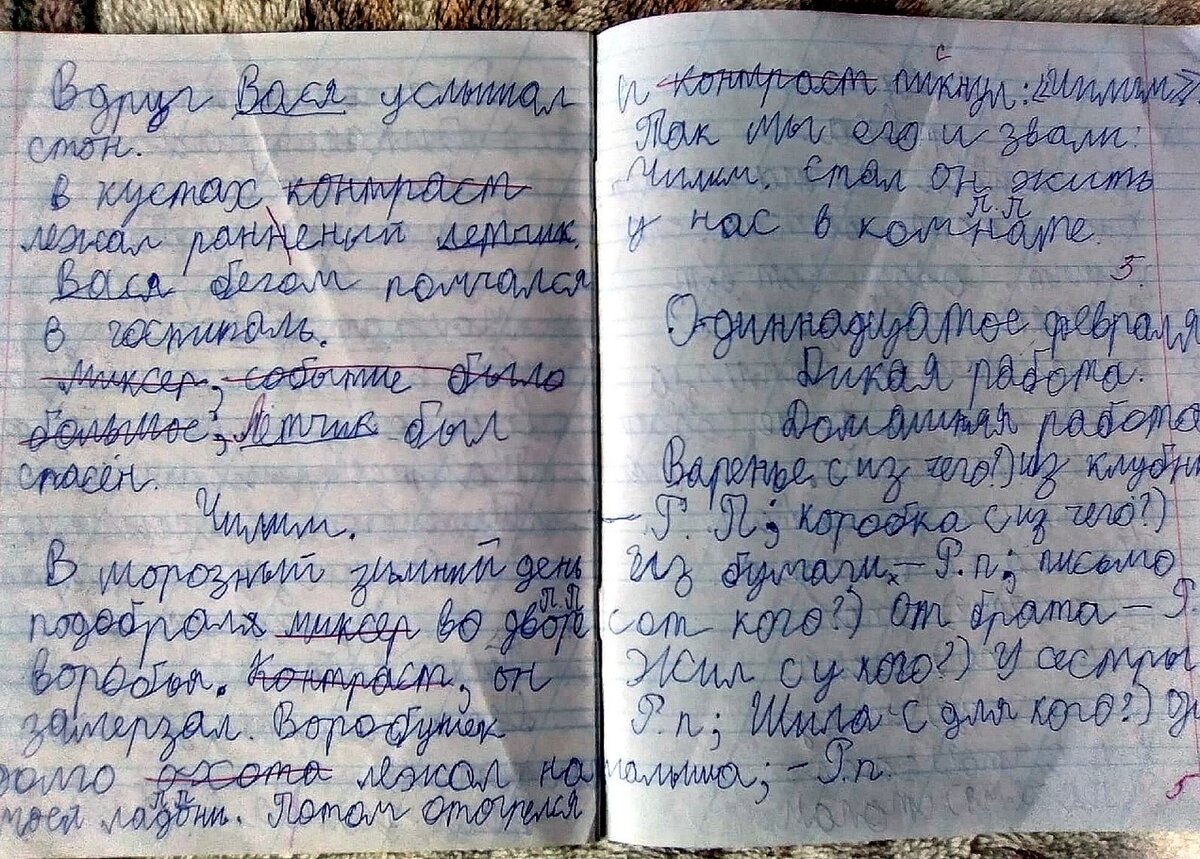 Вдруг Вася услышал
стон.
В кустах контраст
лежал ранненый летчик.
Вася бегом помчался
в госпиталь.
Миксер, событие было
большое, Лётчик был
спасён.
Чилим.
В морозный зимний день
П.П
подобраля миксер во дворе
воробья. Контраст, он
замерзал. Воробушек
долго охота лежал на
П.П
моей ладони. Потом оточелся
с
и контраст пикнул: «Чилим»
Так мы его и звали:
Чилим. Стал он жить
П.П
у нас в комнате.
5.
Одиннадцатое февраля
Дикая работа.
Домашняя работа
Варенье (из чего?) из клубн
– Р. П; коробка (из чего?)
из бумаги, – Р.п; письмо
(от кого?) От брата – Р
Жил (у кого?) У сестры
Р.п; Шила (для кого?) д
малыша; – Р.п.
5